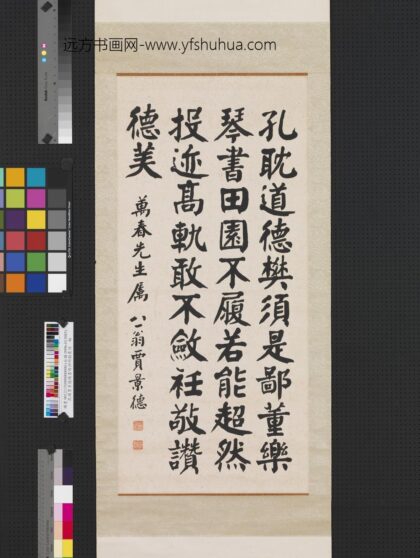 远方书画网-www.yfshuhua.com
孔耽道德樊須是鄙董樂
琴書田園不履若能超然
投迹高軌敢不斂衽敬讃
德美
萬春先生属 八一翁賈景德